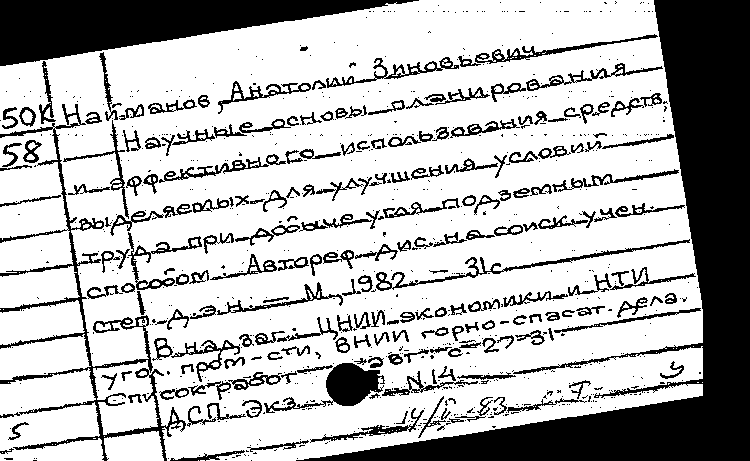 50К Найманов, Анатолий Зиновьевич
58 Научные основы планирования
и эффективного использования средств,
выделяемых для улучшения условий
труда при добыче угля подземным
способом: Автореф. дис. на соиск. учен.
степ. д.э.н. — М., 1982. — 31с
В надзаг.: ЦНИИ экономики и НТИ
угол. пром-сти, ВНИИ горно-спасат. дела.
Список работ авт.: с. 27-31.
ДСП. Экз. N 14
5 14/V-83